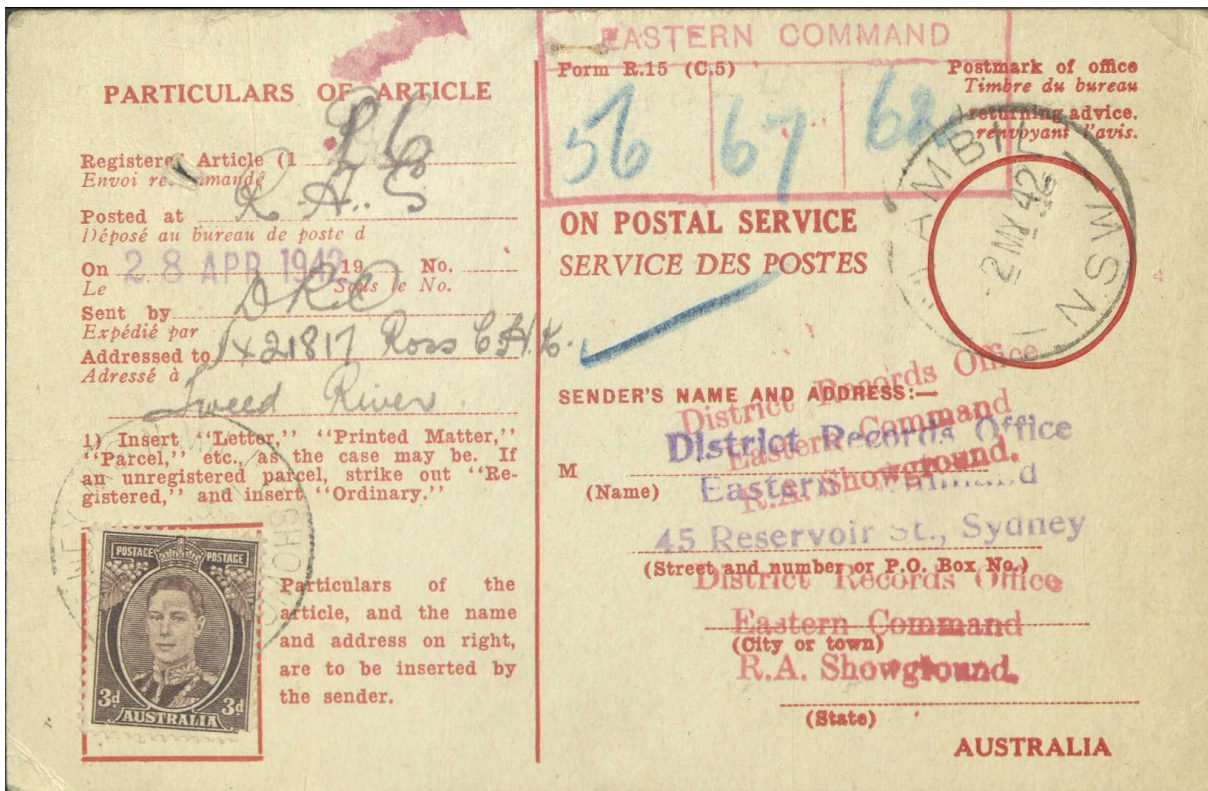 PARTICULARS OF ARTICLE
Registered Article (1
Envoi recommandé
R. A. S
Posted at
Déposé au bureau de poste d
On 28 APR 1942 19 No.
Le Sous le No.
Sent by DRO
Expédié par
Addressed to 421817 Ross C.H.
Adressé à
Tweed River
1) Insert “Letter,” “Printed Matter,”
“Parcel,” etc., as the case may be. If
an unregistered parcel, strike out “Re-
gistered,” and insert “Ordinary.”
SHOWG
POSTAGE POSTAGE
3d 3d
AUSTRALIA
Particulars of the
article, and the name
and address on right,
are to be inserted by
the sender.
EASTERN COMMAND
Form R.15 (C.5)
56 67 62
Postmark of office
Timbre du bureau
returning advice.
renvoyant l'avis.
AMBIL
2 MY 42
N.S.W
ON POSTAL SERVICE
SERVICE DES POSTES
SENDER'S NAME AND ADDRESS:—
District Records Office
Eastern Command
R.A. Showground.
District Records Office
M
(Name)
Eastern Command
45 Reservoir St., Sydney
(Street and number or P.O. Box No.)
District Records Office
Eastern Command
(City or town)
R.A. Showground.
(State)
AUSTRALIA